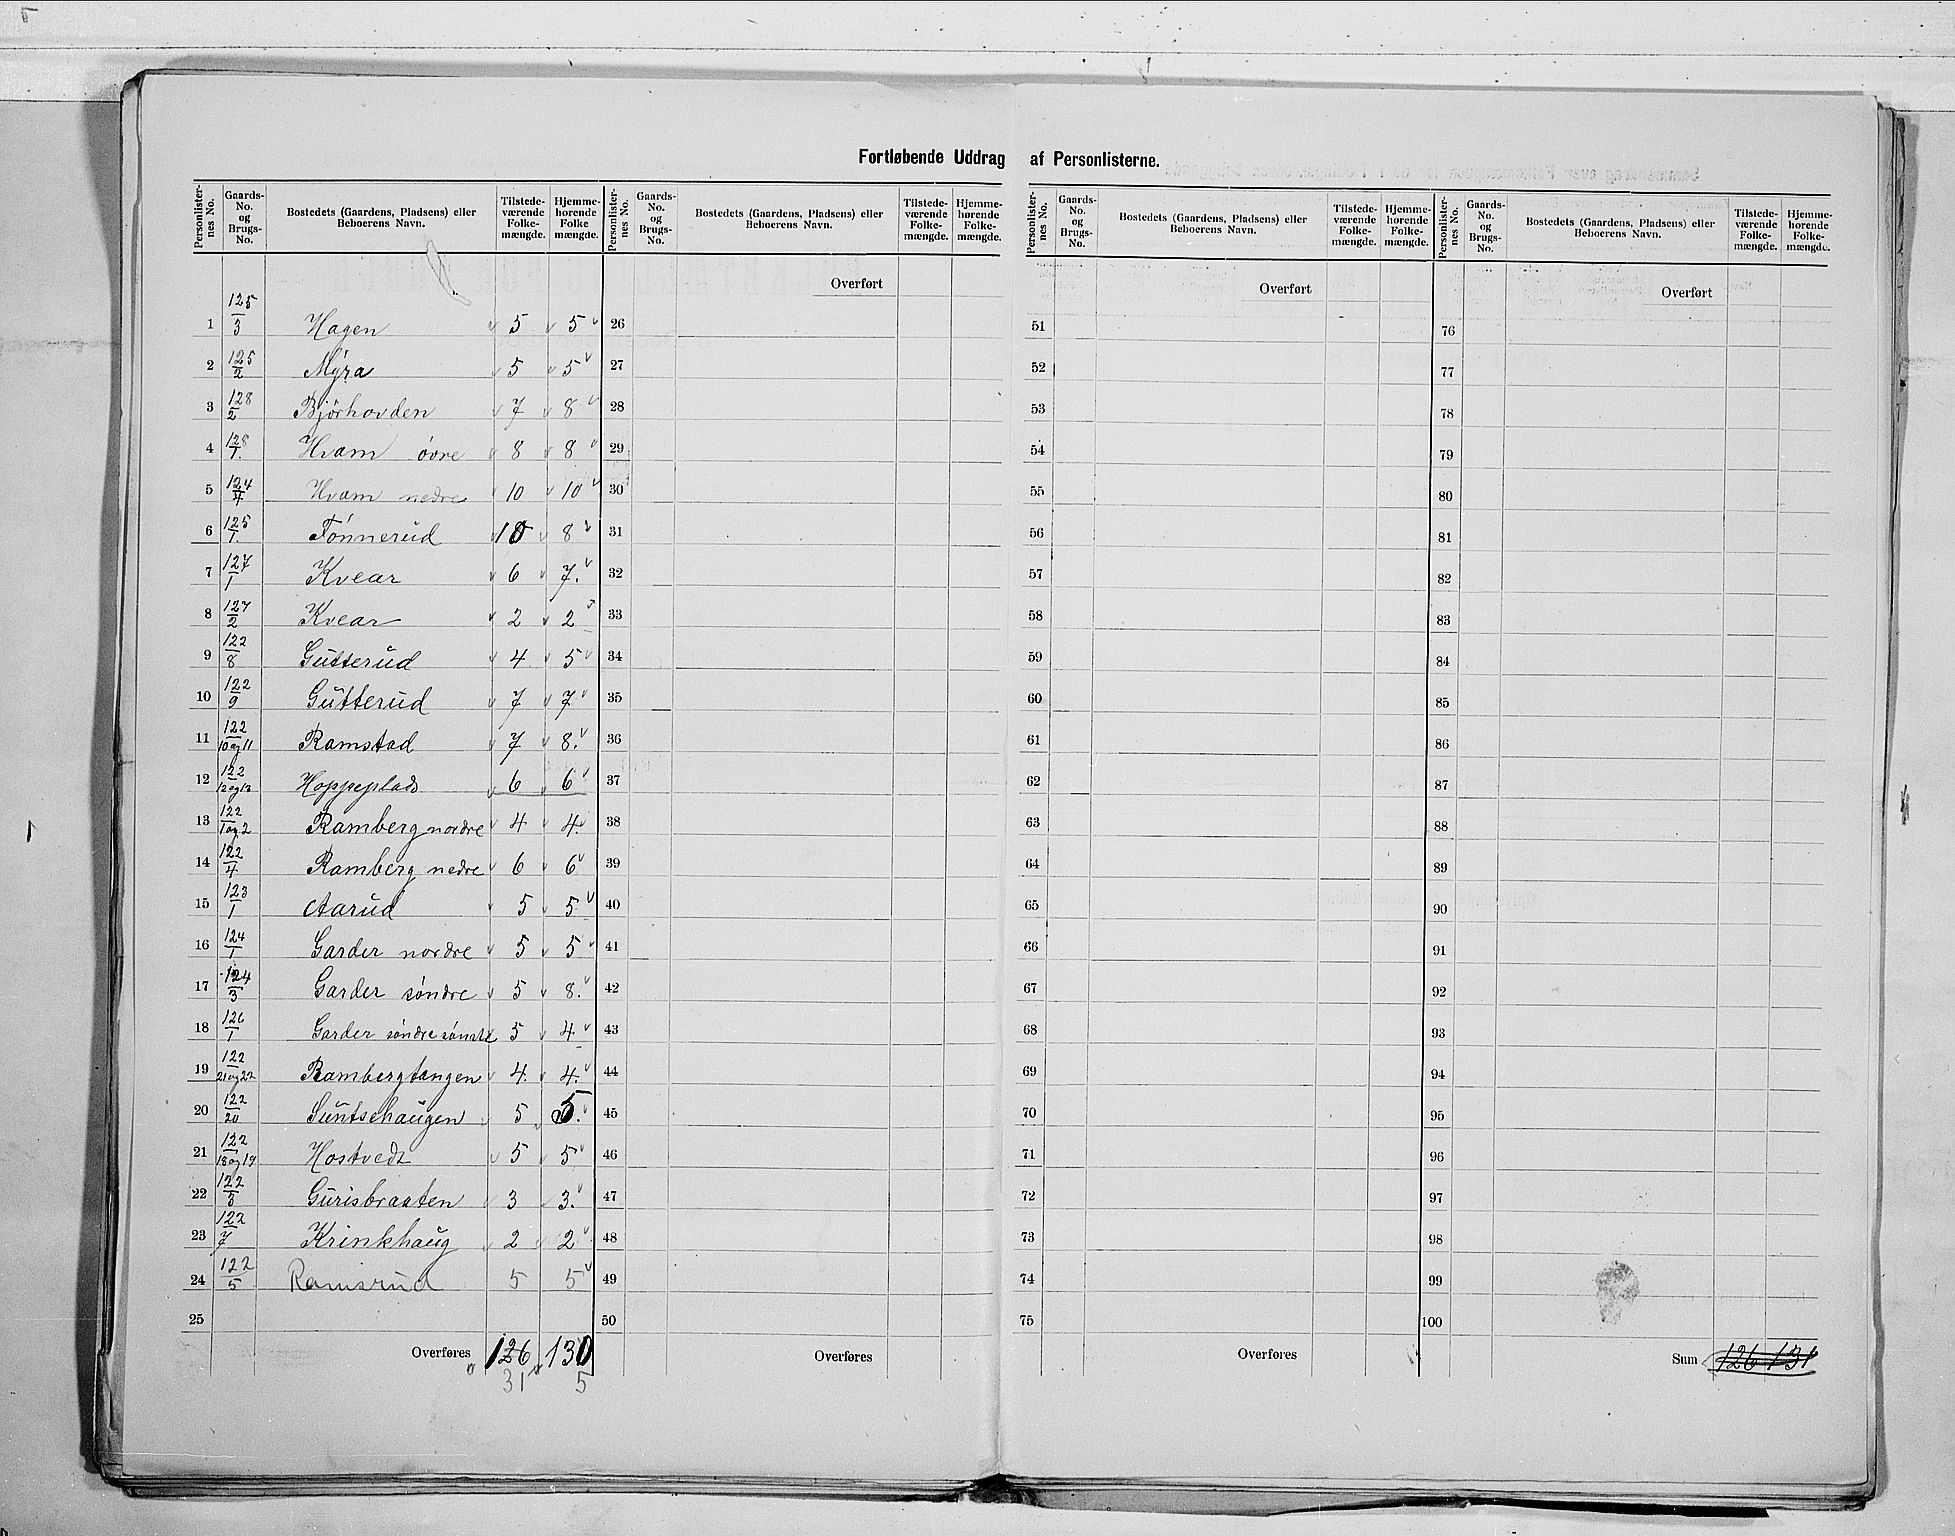 Fortløbende Uddrag af Personlisterne.
Personlister-nes No. | Gaards-No. og Brugs-No. | Bostedets (Gaardens, Pladsens) eller Beboerens Navn. | Tilstede-værende Folke-mængde. | Hjemme-hørende Folke mængde.
1 | 125/3 | Hagen | 5 | 5
2 | 125/2 | Myra | 5 | 5
3 | 128/2 | Bjørhovden | 7 | 8
4 | 128/1. | Hvam øvre | 8 | 8
5 | 124/4 | Hvam nedre | 10 | 10
6 | 125/1. | Tønnerud | 10 | 8
7 | 127/1 | Kvear | 6 | 7.
8 | 127/2 | Kvear | 2 | 2
9 | 122/8 | Gutterud | 4 | 5
10 | 122/9 | Gutterud | 7 | 7
11 | 122/10 og 11 | Ramstad | 7 | 8.
12 | 122/12 og 13 | Hoppeplads | 6 | 6
13 | 122/1 og 2 | Ramberg nordre | 4 | 4.
14 | 122/4 | Ramberg nedre | 6 | 6
15 | 123/1 | Aarud | 5 | 5
16 | 124/1 | Garder nordre | 5 | 5
17 | 124/3 | Garder søndre | 5 | 8.
18 | 126/1 | Garder søndre | 5 | 4
19 | 122/21 og 22 | Rambergtangen | 4. | 4.
20 | 122/20 | Suntsehaugen | 5 | 5.
21 | 122/18 og 19 | Hostvedt | 5 | 5
22 | 122/3 | Gurisbraaten | 3 | 3.
23 | 122/7 | Krinkhaug | 2 | 2
24 | 122/5 | Ramsrud | 5 | 5
25
Overføres | 126 | 130
31 | 5
Personlister-nes No. | Gaards-No. og Brugs-No. | Bostedets (Gaardens, Pladsens) eller Beboerens Navn. | Tilstede-værende Folke-mængde. | Hjemme-hørende Folke-mængde.
Overført
26
27
28
29
30
31
32
33
34
35
36
37
38
39
40
41
42
43
44
45
46
47
48
49
50
Overføres
Personlister-nes No. | Gaards-No. og Brugs-No. | Bostedets (Gaardens, Pladsens) eller Beboerens Navn. | Tilstede-værende Folke-mængde. | Hjemme-hørende Folke-mængde.
Overført
51
52
53
54
55
56
57
58
59
60
61
62
63
64
65
66
67
68
69
70
71
72
73
74
75
Overføres
Personlister-nes No. | Gaards-No. og Brugs-No. | Bostedets (Gaardens, Pladsens) eller Beboerens Navn. | Tilstede-værende Folke-mængde. | Hjemme-hørende Folke-mængde.
Overført
76
77
78
79
80
81
82
83
84
85
86
87
88
89
90
91
92
93
94
95
96
97
98
99
100
Sum | 126 | 131